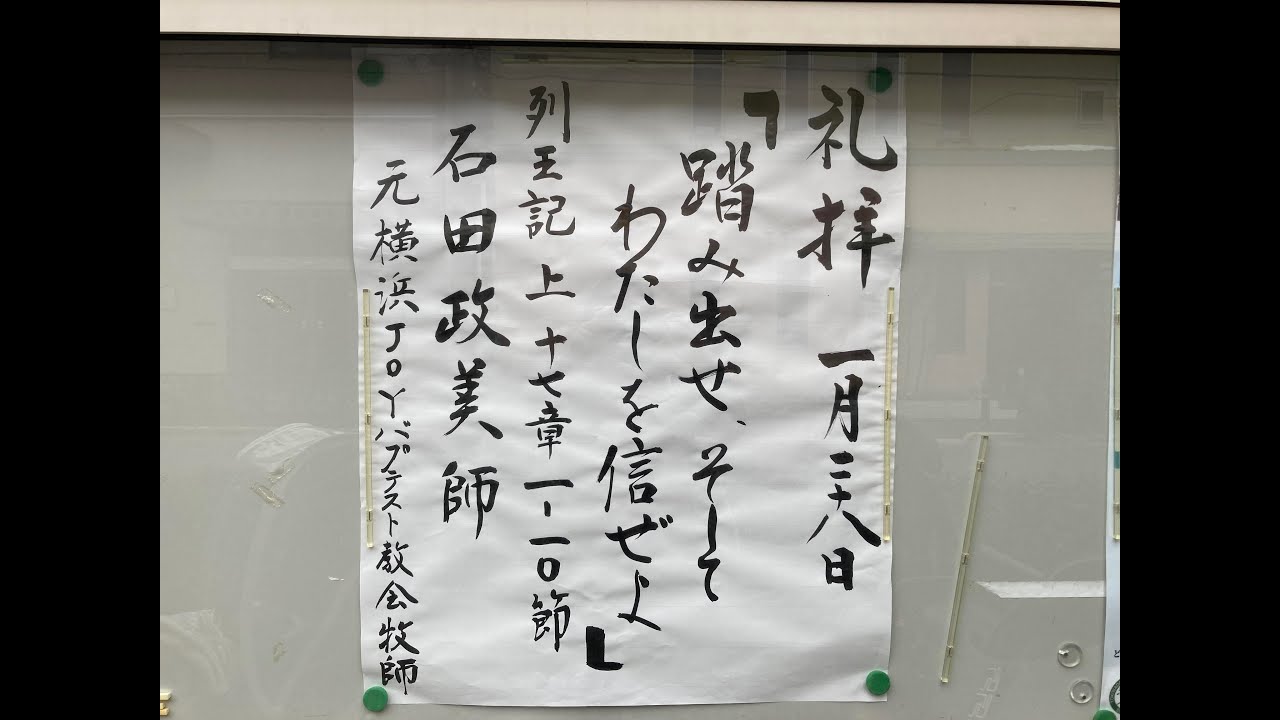 礼拝 一月二十八日
「踏み出せ、そして
わたしを信ぜよ」
列王記 上 十七章 一-一〇節
石田政美師
元横浜JOYバプテスト教会牧師